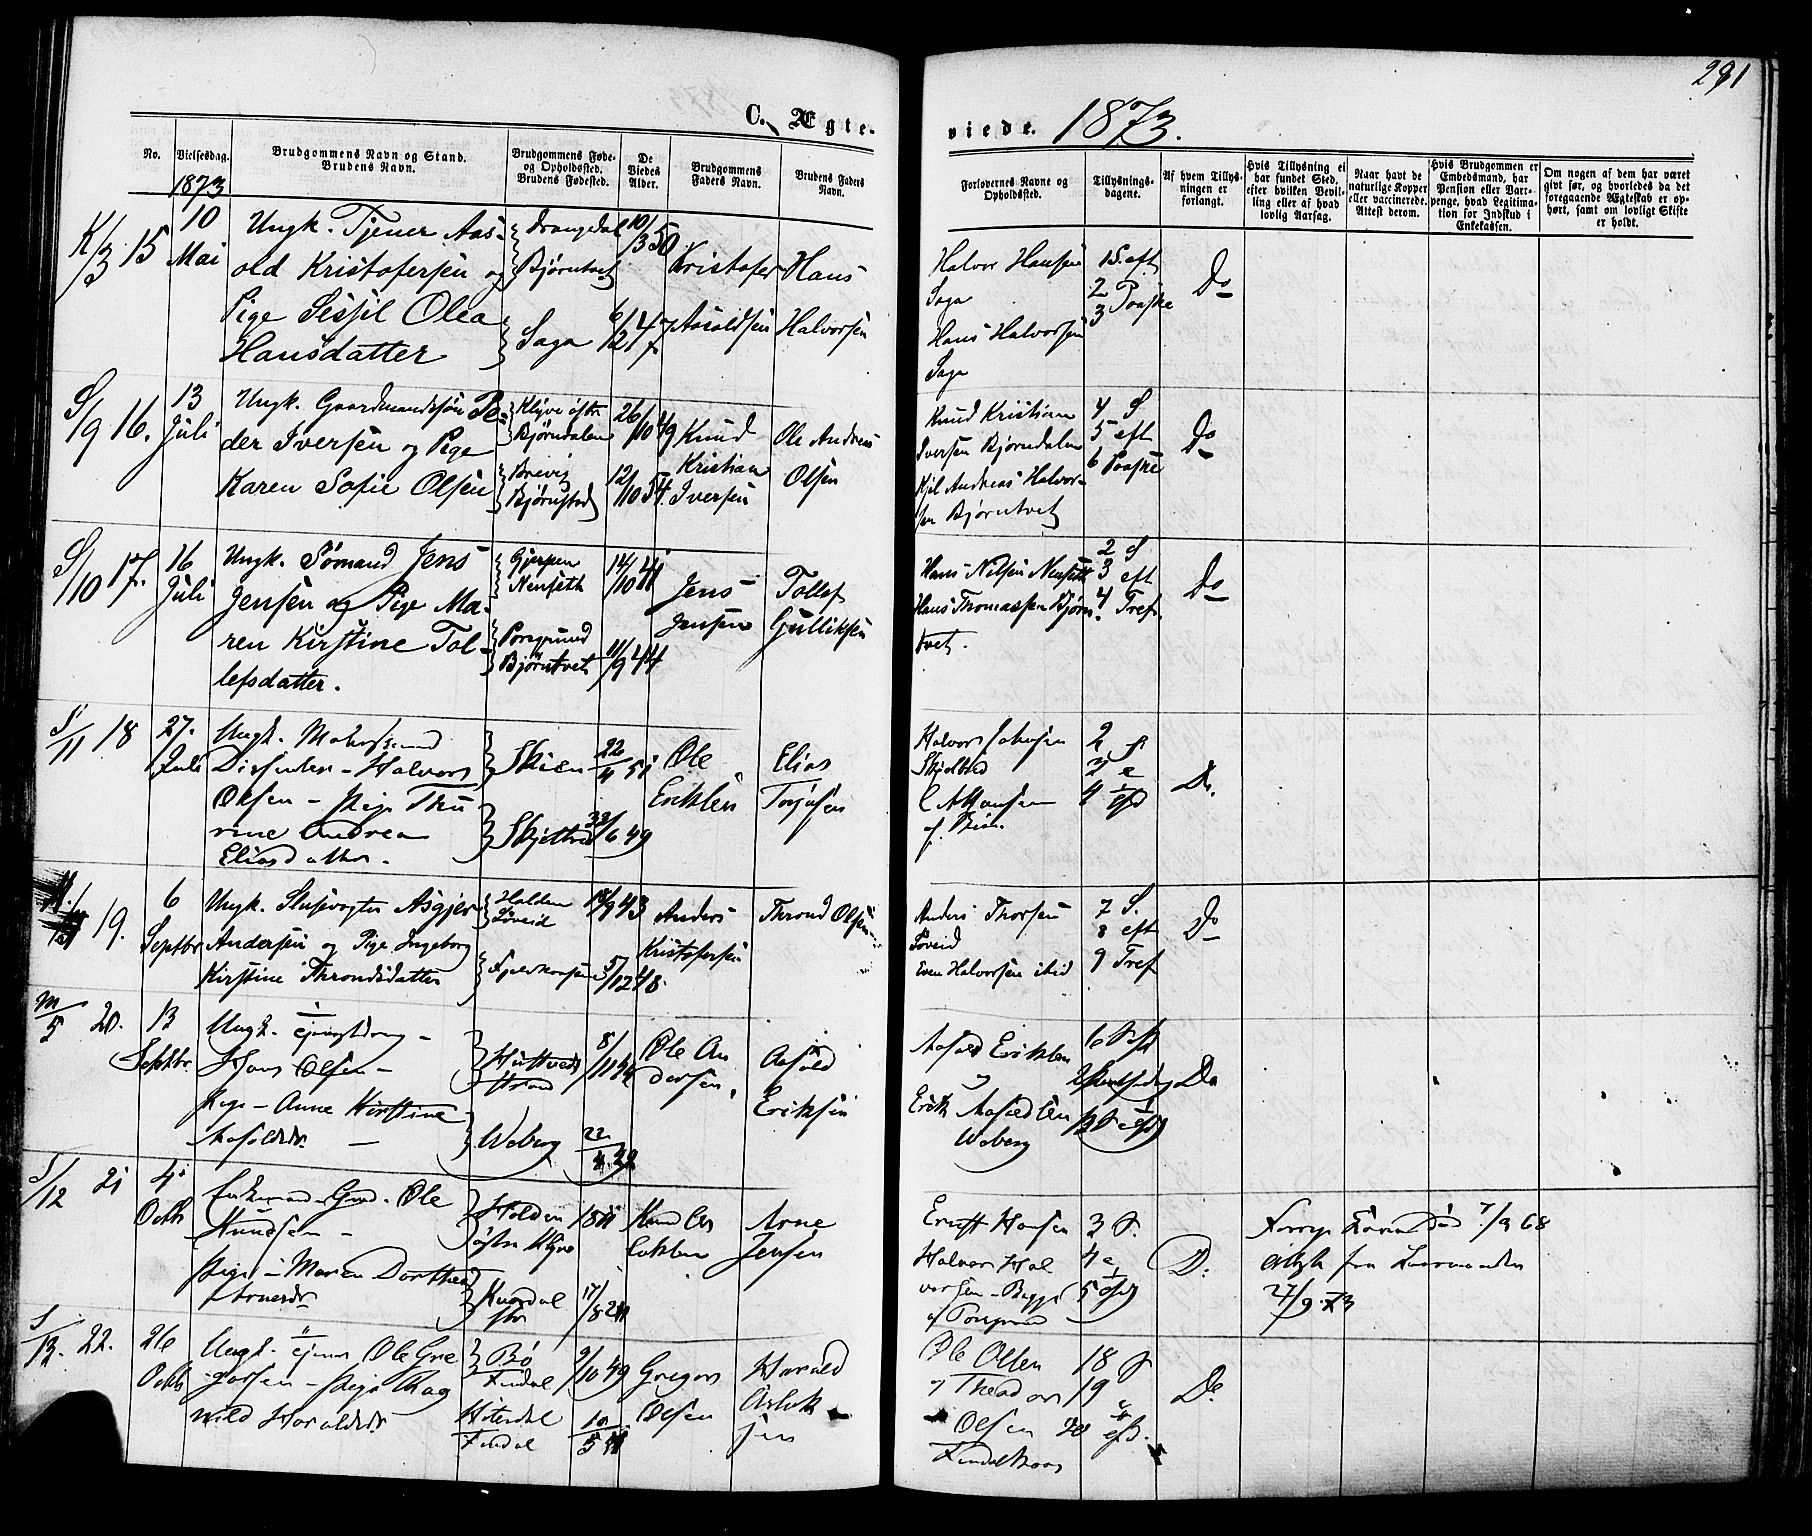 291
C. Ægteviede. 1873.
No.
Vielsesdag.
Brudgommens Navn og Stand.
Brudens Navn.
Brudgommens Føde-
og Opholdssted.
Brudens Fødested.
De
Viedes
Alder.
Brudgommens
Faders Navn.
Brudens Faders
Navn.
Forlovernes Navne og
Opholdssted.
Tillysnings-
dagene.
Af hvem Tillys-
ningen er
forlangt.
Hvis Tillysning ei
har fundet Sted,
efter hvilken Bevil-
ling eller af hvad
lovlig Aarsag.
Naar havt de
naturlige Kopper
eller vaccinerede.
Attest derom.
Hvis Brudgommen er
Embedsmand, har
Pension eller Vart-
penge, hvad Legitima-
tion for Indskud i
Enkekassen.
Om nogen af dem har været
gift før, og hvorledes da det
foregaaende Ægteskab er op-
hørt, samt om lovligt Skifte
er holdt.
1873
K/3 15
10
Mai
Ungk. Tjener Aas-
old Kristofersen og
Pige Sissil Olea
Hansdatter
Drangedal
Bjørntvet
Saga
10/3 50
6/12 47
Kristofer
Aasoldsen
Hans
Halvorsen
Halvor Hansen
Saga
Hans Halvorsen
Saga
1 S. eft
2
3 Paaske
Do
S/9 16.
13
Juli
Ungk. Gaardmandssøn Pe-
der Iversen og Pige
Karen Sofie Olsen
Klyve østre
Bjørndalen
Brevig
Bjørnstad
26/10 49
12/10 54.
Knud
Kristian
Iversen
Ole Andreas
Olsen
Knud Kristian
Iversen Bjørndalen
Kjel Andreas Halvor-
sen Bjørntvet
4 S
5 eft
6 Paaske
Do
S/10 17.
16
Juli
Ungk. Sømand Jens
Jensen og Pige Ma-
ren Kirstine Tol-
lefsdatter.
Gjerpen
Nenseth
Porsgrund
Bjørntvet
14/10 41
11/9 44
Jens
Jensen
Tollef
Gulliksen
Hans Nilsen Nenseth
Hans Thomassen Bjørn-
tvet.
2 S
3 eft
4. Tref
Do
S/11 18
27.
Juli
Ungk.
Dissenter - Halvor
Olsen - Pige Thu
rine Andrea
Eliasdatter.
Skien
Skjeltved
22/4 51
23/6 49
Ole
Eriksen
Elias
Torjusen
Halvor Johnsen
Skjeltved
2 S
3 e
4
Do.
19.
6
Septbr
Ungk. Slusevogter Asgjer
Andersen og Pige Ingeborg
Kirstine Throndsdatter
Holden
Løveid
18/9 43
5/12 48.
Anders
Kristofersen
Thrond Olsen
Anders Thorsen
Løveid
Even Halvorsen ibid
7 S.
8 eft
9 Tref
Do
M/5 20.
13
Septbr.
Ungk.
Hans Olsen -
Pige - Anne Kirstine
Aasoldsdr. -
Weberg
8/11
22/4
Ole An
dersen,
Aasold
Eriksen
Aasold Eriksen
Erik Aasoldsen
Weberg
Do
S/12 21
4
Octbr
Enkemand - Ole
Knudsen -
Pige - Maren Dorthea
Arnesdr.
Holden
østre Klyve
17/8
Knud
Arne
Jensen
Ernst Hansen
Halvor Hal
vorsen -
3 S.
4 e
5
Do
7/9 68
fra Lensmanden
27/9 73
S/13. 22.
26
Octbr
Ungk. Ole Gre
gorsen - Pige Rag
nild Haraldsdr.
Bø
Findal
Hiterdal
Findal
9/10 49
Gregor
Olsen
Harald
Aslak
sen
Ole Olsen
Olsen
18 S
19
20
Do